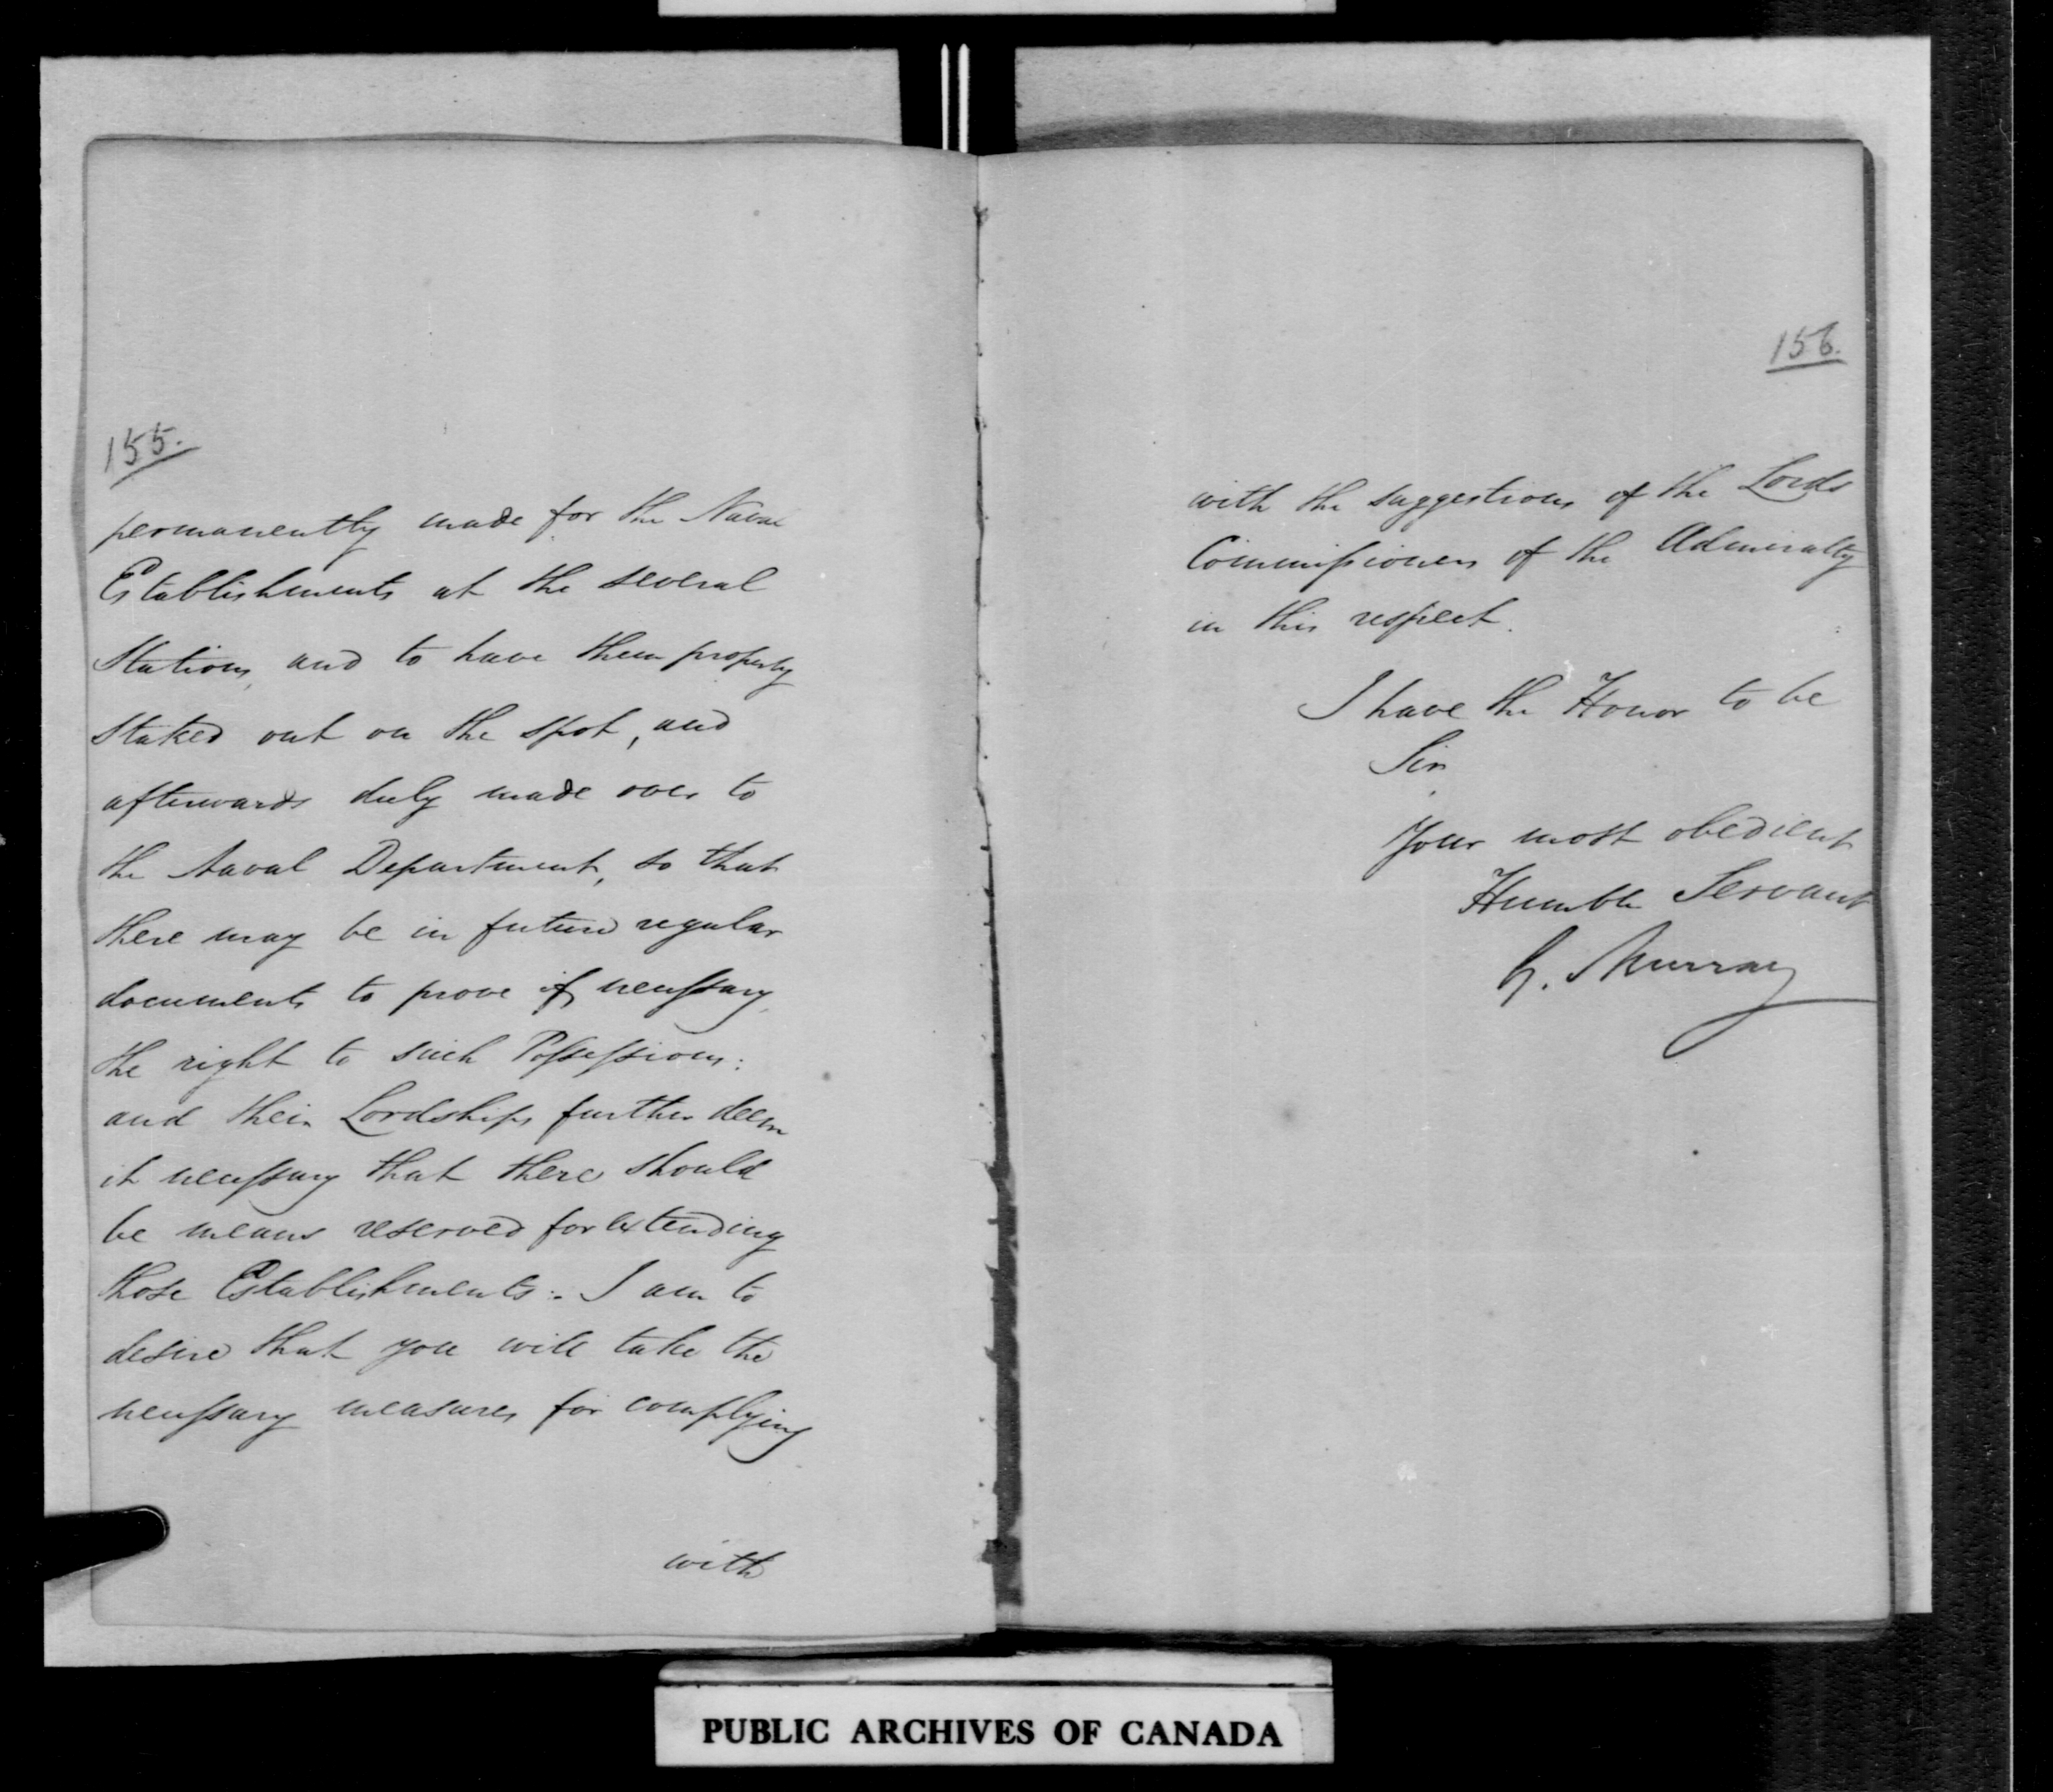 155.
permanently made for the Naval
Establishments at the several
Stations, and to have them properly
staked out on the spot, and
afterwards duly made over to
the Naval Department, so that
there may be in future regular
documents to prove if necessary,
the right to such Possessions:
and their Lordships further deem
it necessary that there should
be means reserved for extending
those Establishments:- I am to
desire that you will take the
necessary measures for complying
with
156.
with the suggestions of the Lords
Commissioners of the Admiralty
in this respect.
I have the Honor to be
Sir
Your most obedient
Humble Servant
G. Murray
PUBLIC ARCHIVES OF CANADA